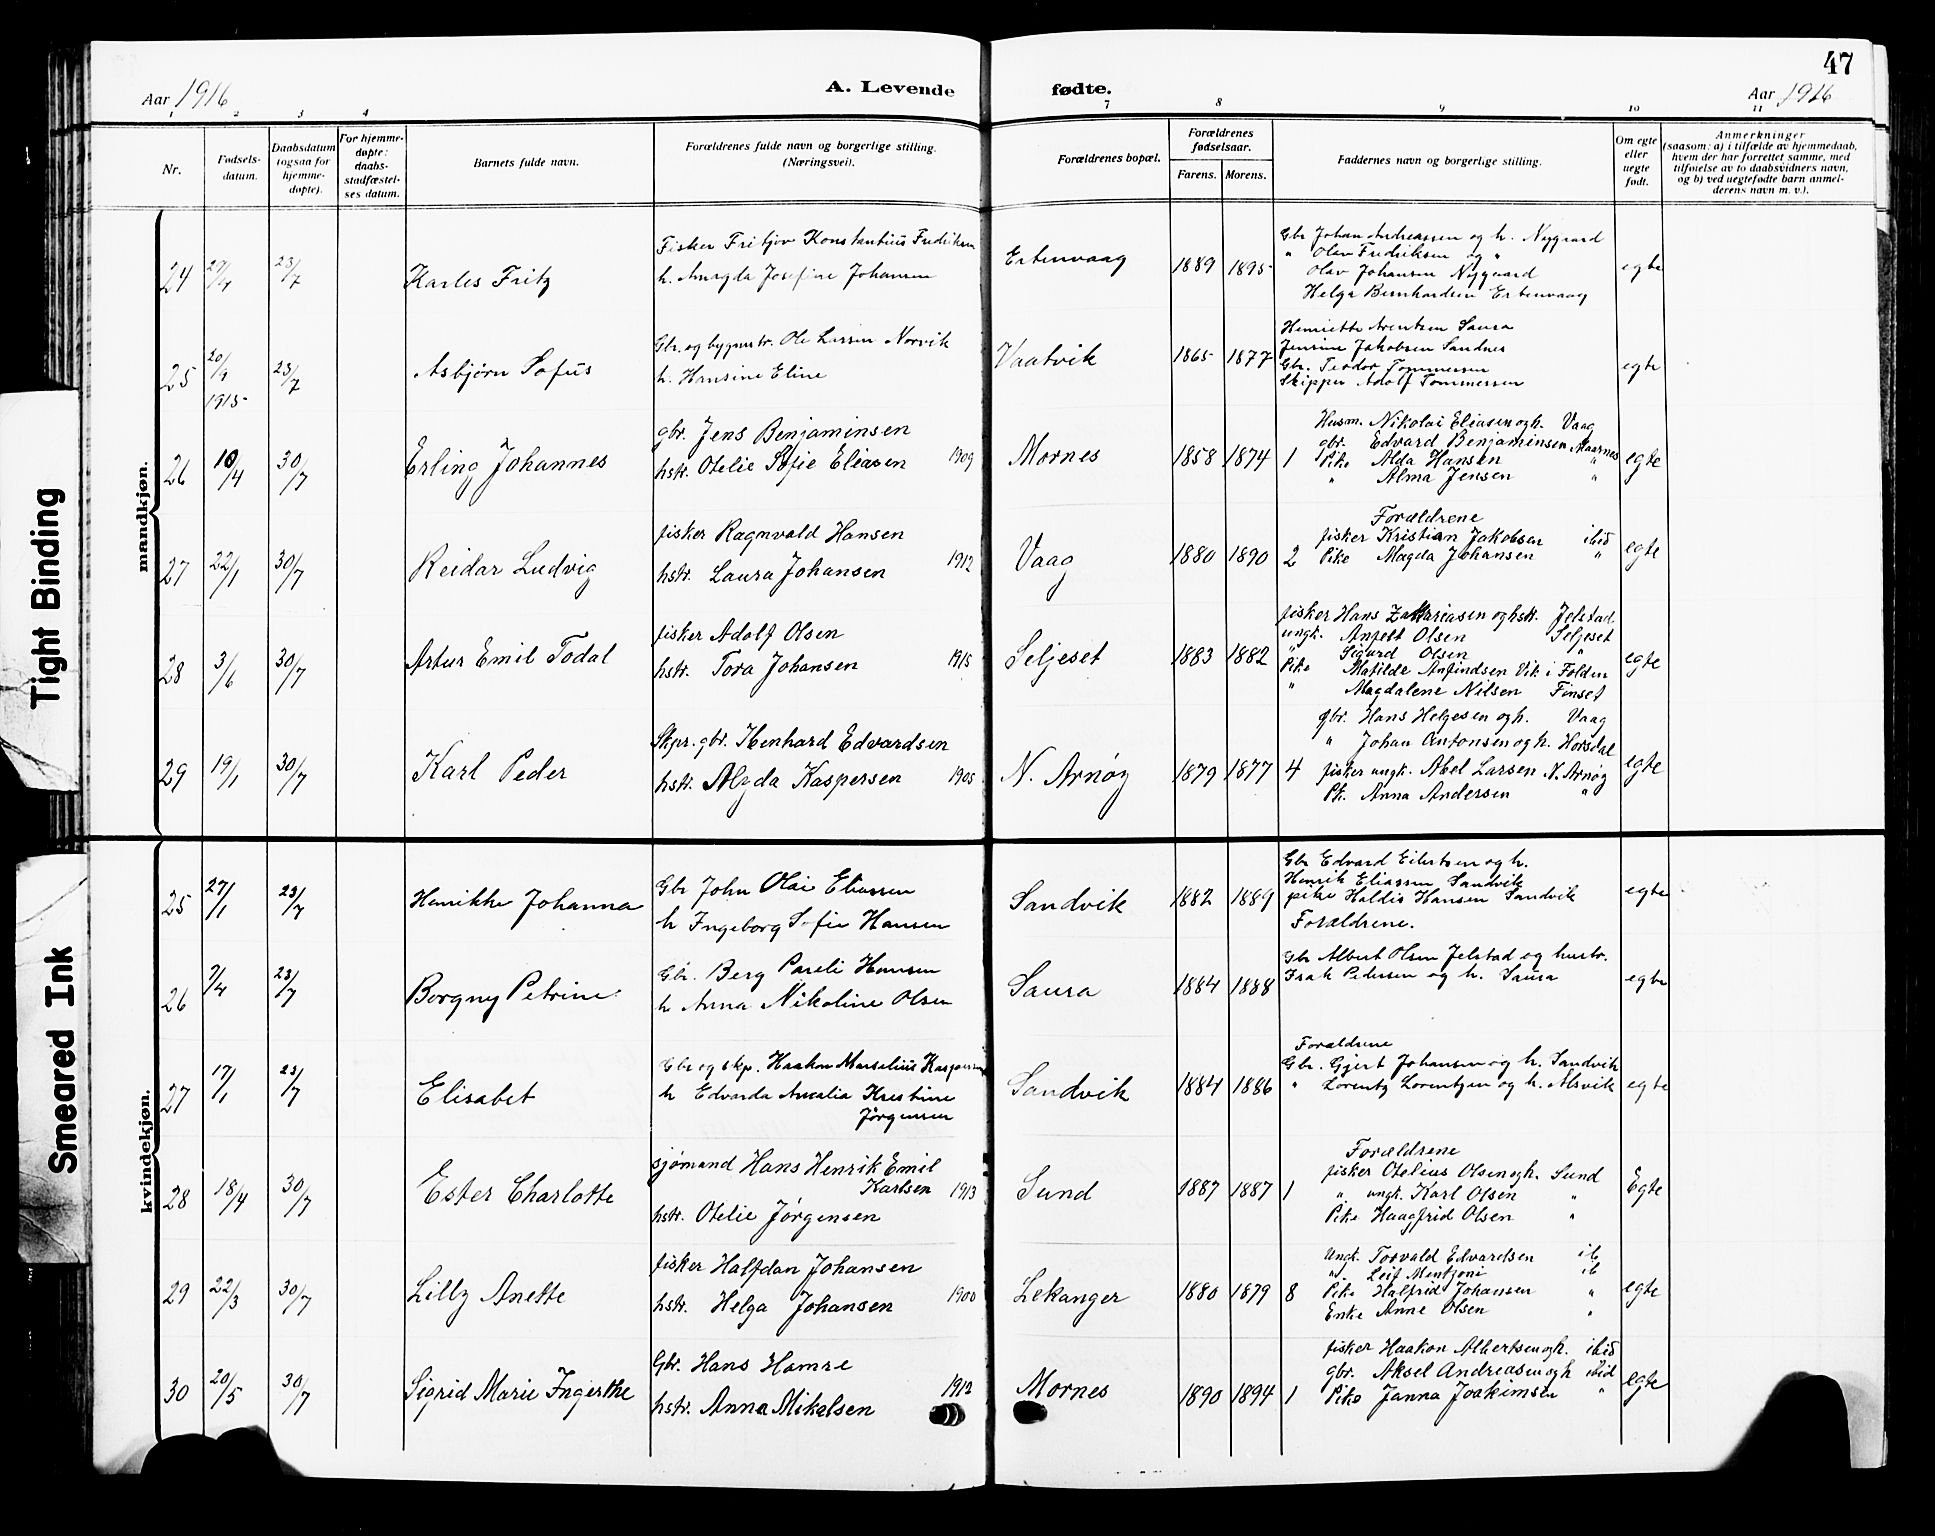 47
Aar 1916
A. Levende
fødte.
Aar 1916
1 2 3 4 7 8 9 10 11
Nr.
Fødsels-
datum.
Daabsdatum
(ogsaa for
hjemme-
døpte).
For hjemme-
døpte:
daabs-
stadfæstel-
ses datum.
Barnets fulde navn.
Forældrenes fulde navn og borgerlige stilling.
(Næringsvei).
Forældrenes bopæl.
Forældrenes
fødselsaar.
Farens. Morens.
Faddernes navn og borgerlige stilling.
Om egte
eller
uegte
født.
Anmerkninger
(saasom: a) i tilfælde av hjemmedaab,
hvem der har forrettet samme, med
tilføielse av to daabsvidners navn,
og b) ved uegtefødte barn anmel-
derens navn m. v.).
mandkjøn.
24 27/4 23/7 Karles Fritz
Fisker Fritjov Konstantius Fredriksen
h. Josefine Johansen
Ertenvaag 1889 1895
Gbr Johan Andreassen og h. Nygaard
" Olav Fredriksen og "
Olav Johansen Nygaard
Helga Bernhardsen Ertenvaag
egte
25 20/9 1915 23/7 Asbjørn Sofus
Gbr. og bygmstr. Ole Larsen Norvik
h. Hansine Eline
Vaatvik 1865 1877
Henriette Arentsen Saura
Jensine Jakobsen Sandnes
Gbr. Teodor Tommessen
Skipper Adolf Tommessen
egte
26 10/4 30/7 Erling Johannes
gbr. Jens Benjaminsen
hstr. Otelie Sofie Eliasen 1909
Mornes 1858 1874 1
Husm. Nikolai Eliasen og h. Vaag
gbr. Edvard Benjaminsen Maarnes
Pike Alda Hansen "
" Alma Jensen "
egte
27 22/1 30/7 Reidar Ludvig
fisker Ragnvald Hansen
hstr. Laura Johansen 1912
Vaag 1880 1890 2
Forældrene
fisker Kristian Jakobsen ibid
Pike Magda Johansen "
egte
28 3/6 30/7 Artur Emil Todal
fisker Adolf Olsen
hstr. Tora Johansen 1915
Seljeset 1883 1882
fisker Hans Zakariasen og hstr. Jelstad
ungk. Anfelt Olsen Seljeset
" Sigurd Olsen "
Pike Matilde Anfindsen Vik i Folden
" Magdalene Nilsen Finset
egte
29 19/1 30/7 Karl Peder
Skpr. gbr. Ibenhard Edvardsen
hstr. Alyda Kaspersen 1905
N. Arnøy 1879 1877 4
gbr. Hans Helgesen og h. Vaag
" Johan Antonsen og h. Horsdal
fisker ungk. Abel Larsen N. Arnøy
Pk. Anna Andersen "
egte
kvindekjøn.
25 27/1 23/7 Henrikke Johanna
Gbr John Olai Eliassen
h Ingeborg Sofie Hansen
Sandvik 1882 1889
Gbr Edvard Eilertsen og h.
Henrik Eliassen Sandvik
pike Haldis Hansen Sandvik
Forældrene.
egte
26 7/4 23/7 Borgny Petrine
Gbr. Berg Pareli Hansen
h Anna Nikoline Olsen
Saura 1884 1888
Gbr Albert Olsen Jelstad og hustr.
Isak Pedersen og h. Saura
egte
27 17/1 23/7 Elisabet
Gbr og skp. Haakon Marselius Kaspersen
h Edvarda Amalia Kristine
Jørgensen
Sandvik 1884 1886
Forældrene
Gbr. Gjert Johansen og h. Sandvik
" Lorentz Lorentzen og h. Alsvik
egte
28 18/4 30/7 Ester Charlotte
sjømand Hans Henrik Emil
Karlsen 1913
hstr. Otelie Jørgensen
Sund 1887 1887 1
Forældrene
fisker Otelius Olsen og h. Sund
" ungk. Karl Olsen "
Pike Haagfrid Olsen "
Egte
29 22/3 30/7 Lilly Anette
fisker Halfdan Johansen
hstr. Helga Johansen 1900
Lekanger 1880 1879 8
Ungk. Torvald Edvardsen ib
" Leif Mentzoni ib
Pike Halfrid Johansen "
Enke Anne Olsen "
egte
30 20/5 30/7 Sigrid Marie Ingerthe
Gbr. Hans Hamre
hstr. Anna Mikalsen 1912
Mornes 1890 1894 1
fisker Haakon Albertsen og h. ibid
gbr. Aksel Andreasen og h ibid
Pike Janna Joakimsen "
egte
Tight Binding
Smeared Ink